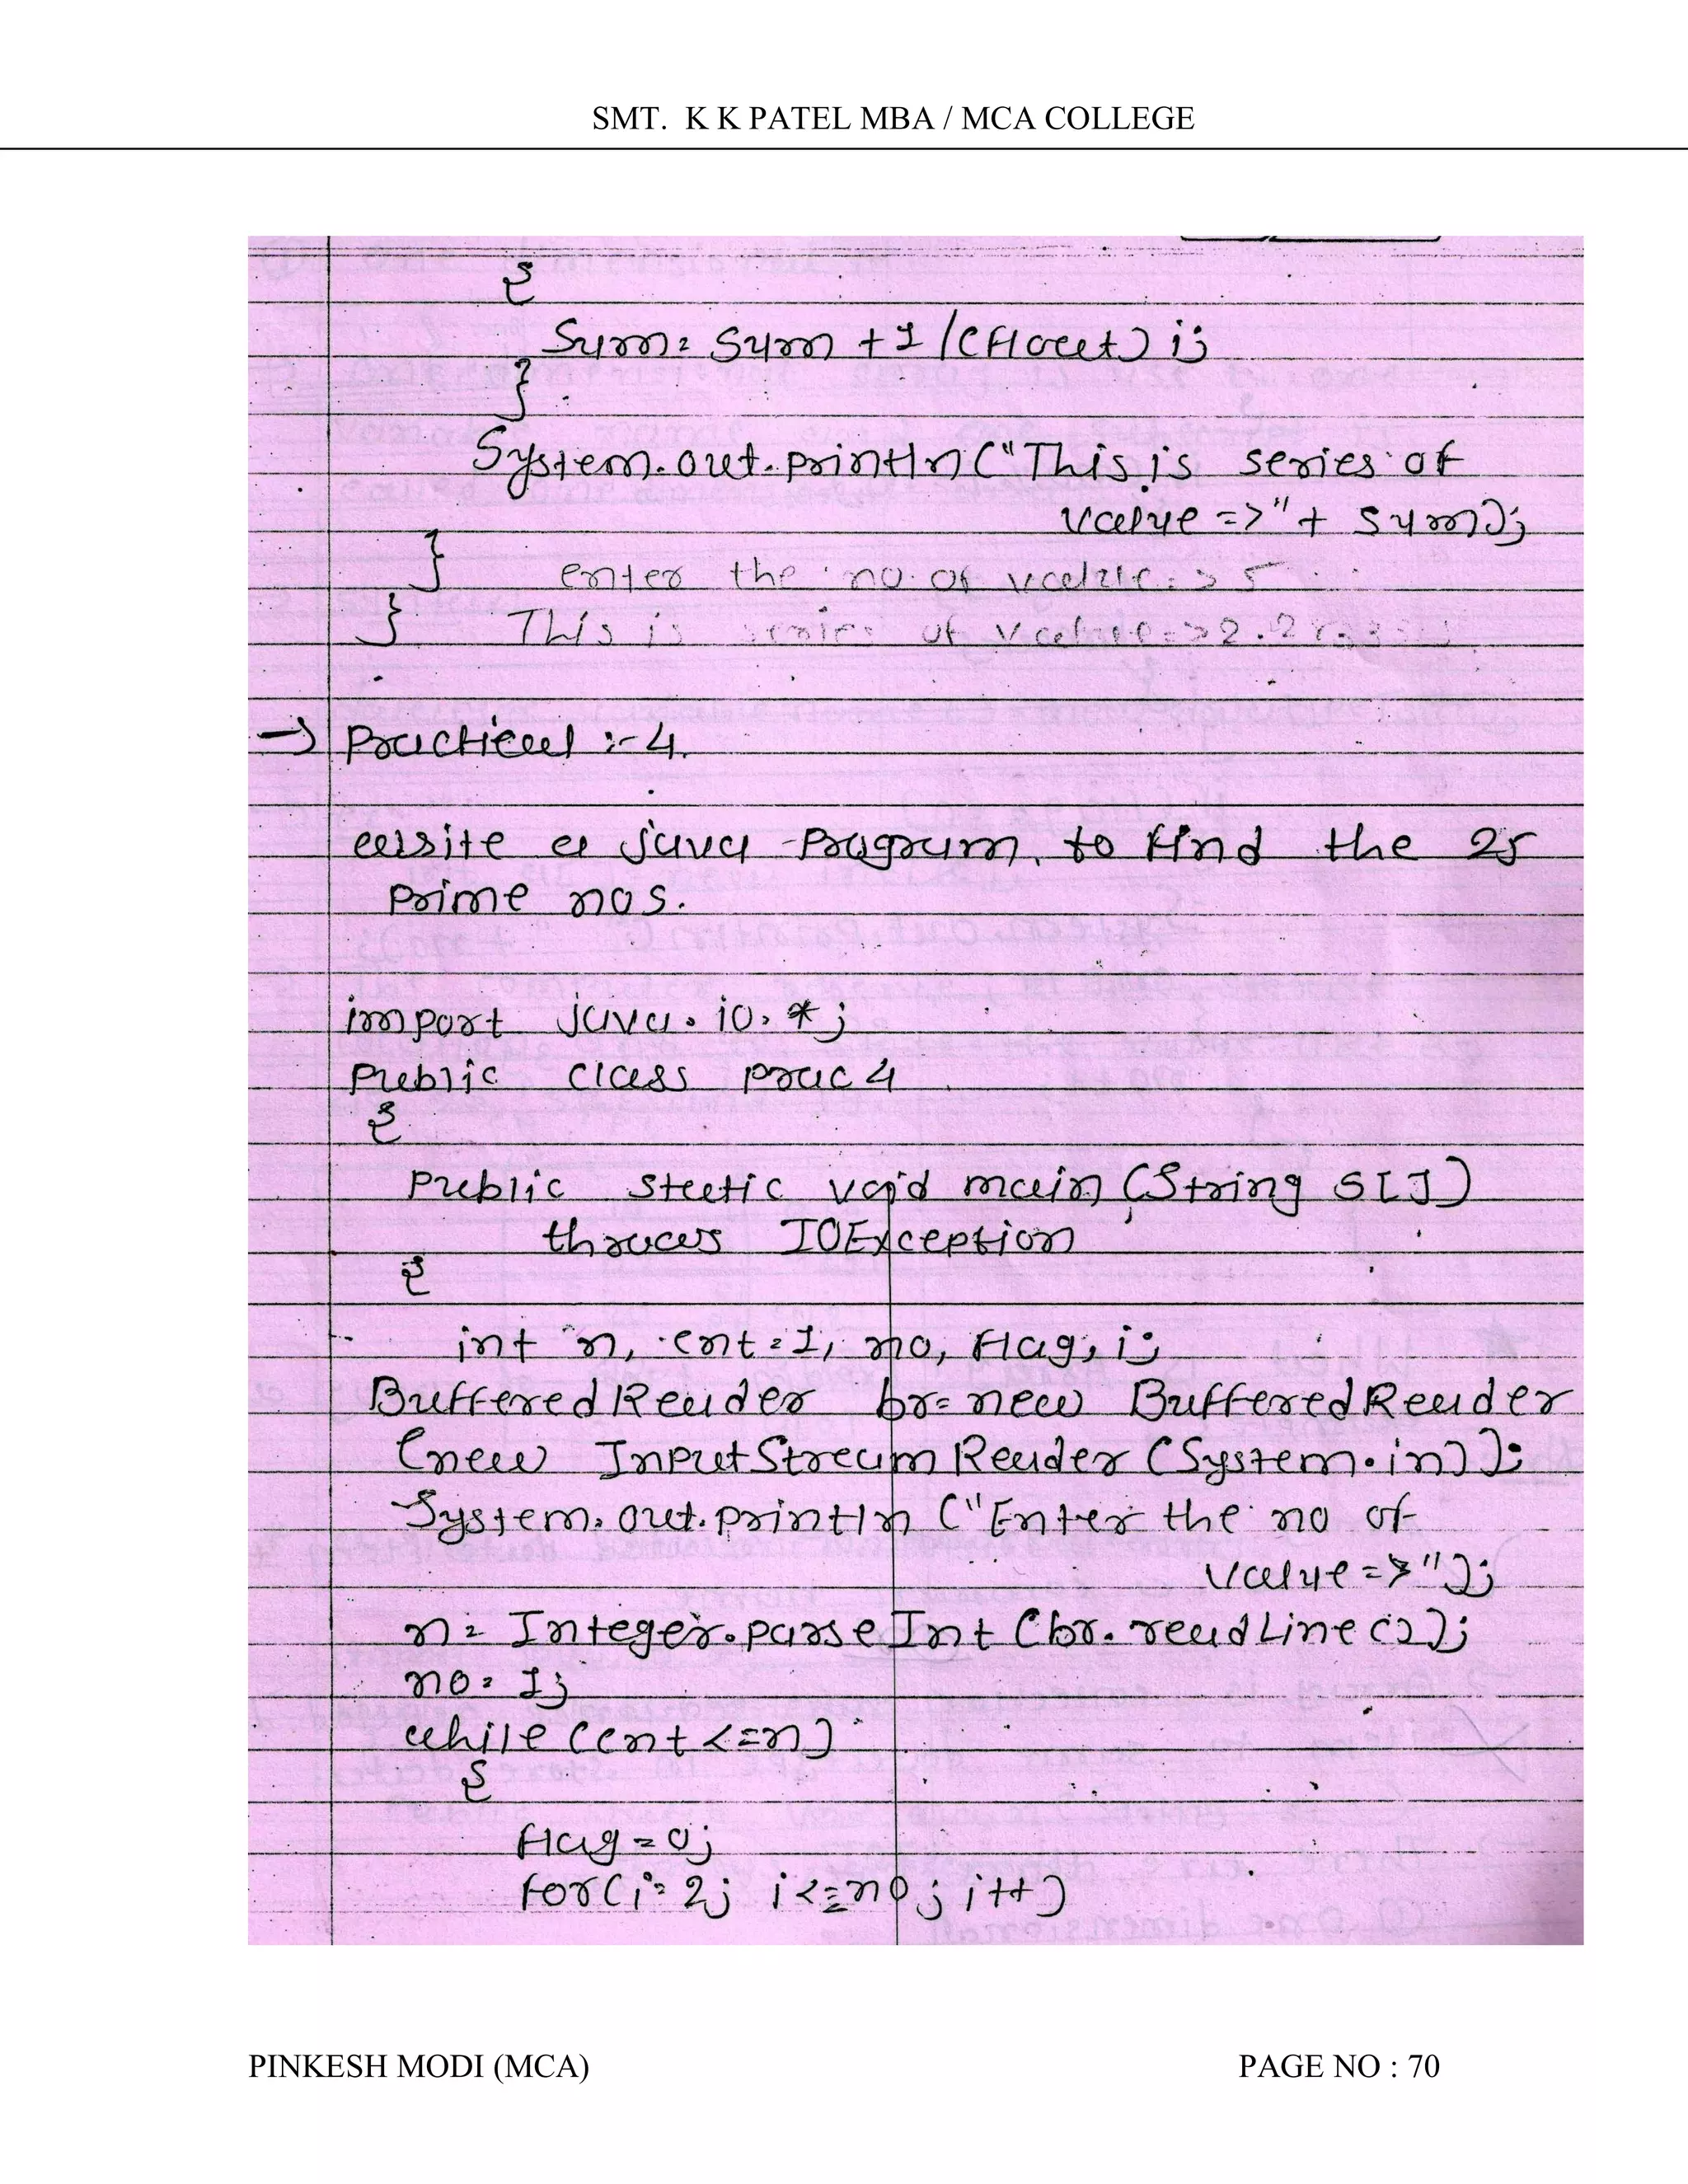 SMT. K K PATEL MBA / MCA COLLEGE
{
Sum = Sum + 1 / (float) i;
}
System.out.println ("This is series of
value =>" + sum);
}
enter the no. of value => 5
} This is series of value => 2.2833
→ Practical :- 4.
write a java program to find the 25
prime nos.
import java.io.*;
Public class prac4
{
Public static void main (String S[])
throws IOException
{
int n, cnt = 1, no, flag, i;
BufferedReader br = new BufferedReader
(new InputStreamReader (System.in));
System.out.println ("Enter the no of
value =>");
n = Integer.parseInt (br.readLine());
no = 1;
while (cnt <= n)
{
flag = 0;
for (i = 2; i <= no; i++)
PINKESH MODI (MCA) PAGE NO : 70